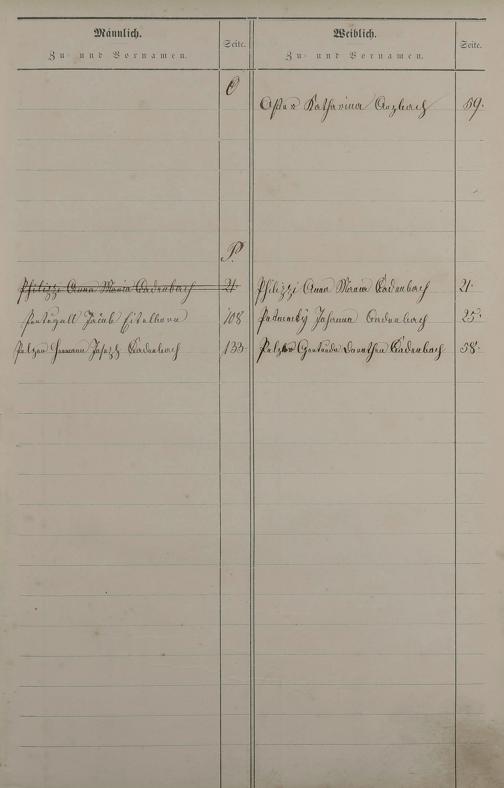 Männlich.
Zu- und Vornamen.
Seite.
Weiblich.
Zu- und Vornamen.
Seite.
O
Oster Katharina Arzbach 59.
P.
Philippi Anna Maria Cadenbach 21.
Philippi Anna Maria Cadenbach 21.
Portugall Jacob Eitelborn 108
Johanna Cadenbach 25.
Pelzer Hermann Joseph Cadenbach 133
Pelzer Gertruda Dorothea Cadenbach 58.